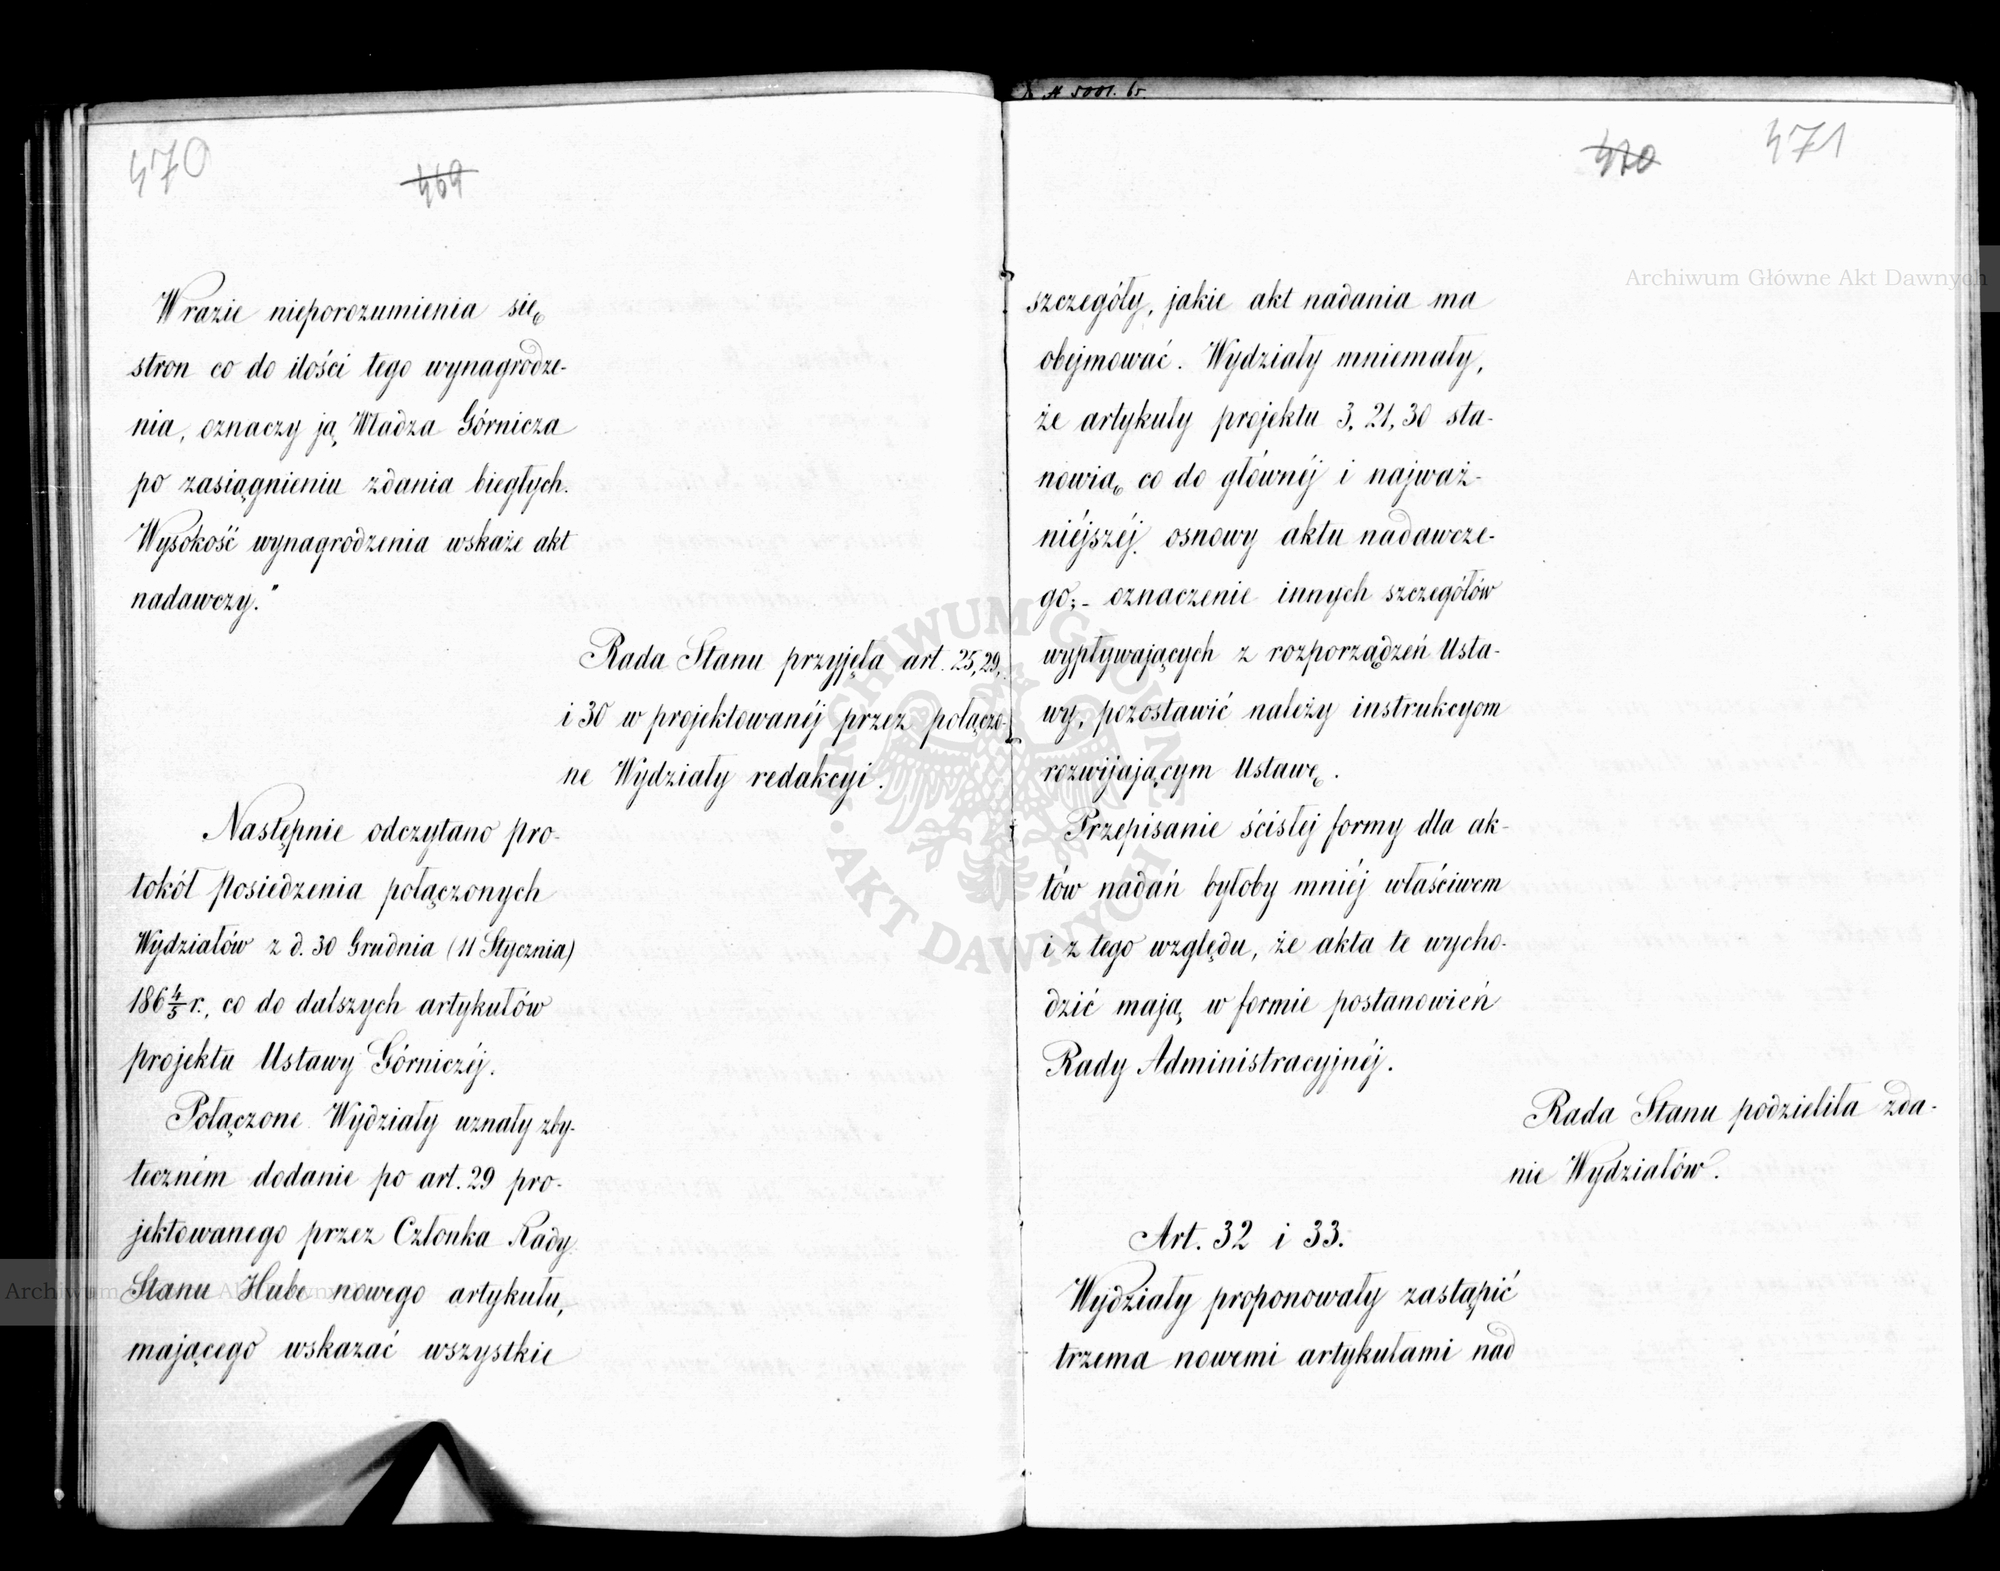 470
469
W razie nieporozumienia się
stron co do ilości tego wynagrodze-
nia, oznaczy ją Władza Górnicza
po zasiągnieniu zdania biegłych.
Wysokość wynagrodzenia wskaże akt
nadawczy."
Rada Stanu przyjęła art. 25, 29,
i 30 w projektowanéj przez połączo-
ne Wydziały redakcyi.
Następnie odczytano pro-
tokół posiedzenia połączonych
Wydziałów z d. 30 Grudnia (11 Stycznia)
186 4/5 r., co do dalszych artykułów
projektu Ustawy Górniczéj.
Połączone Wydziały uznały zby-
teczném dodanie po art. 29 pro-
jektowanego przez Członka Rady
Stanu Hube nowego artykułu,
mającego wskazać wszystkie
470
471
szczegóły, jakie akt nadania ma
obejmować. Wydziały mniemały,
że artykuły projektu 3, 21, 30 sta-
nowią co do głównéj i najważ-
niéjszéj osnowy aktu nadawcze-
go;- oznaczenie innych szczegółów
wypływających z rozporządzeń Usta-
wy, pozostawić należy instrukcyom
rozwijającym Ustawę.
Przepisanie ścisłej formy dla ak-
tów nadań byłoby mniéj właściwem
i z tego względu, że akta te wycho-
dzić mają w formie postanowień
Rady Administracyjnéj.
Rada Stanu podzieliła zda-
nie Wydziałów.
Art. 32 i 33.
Wydziały proponowały zastąpić
trzema nowemi artykułami nad
Archiwum Główne Akt Dawnych
ARCHIWUM GŁÓWNE
AKT DAWNYCH